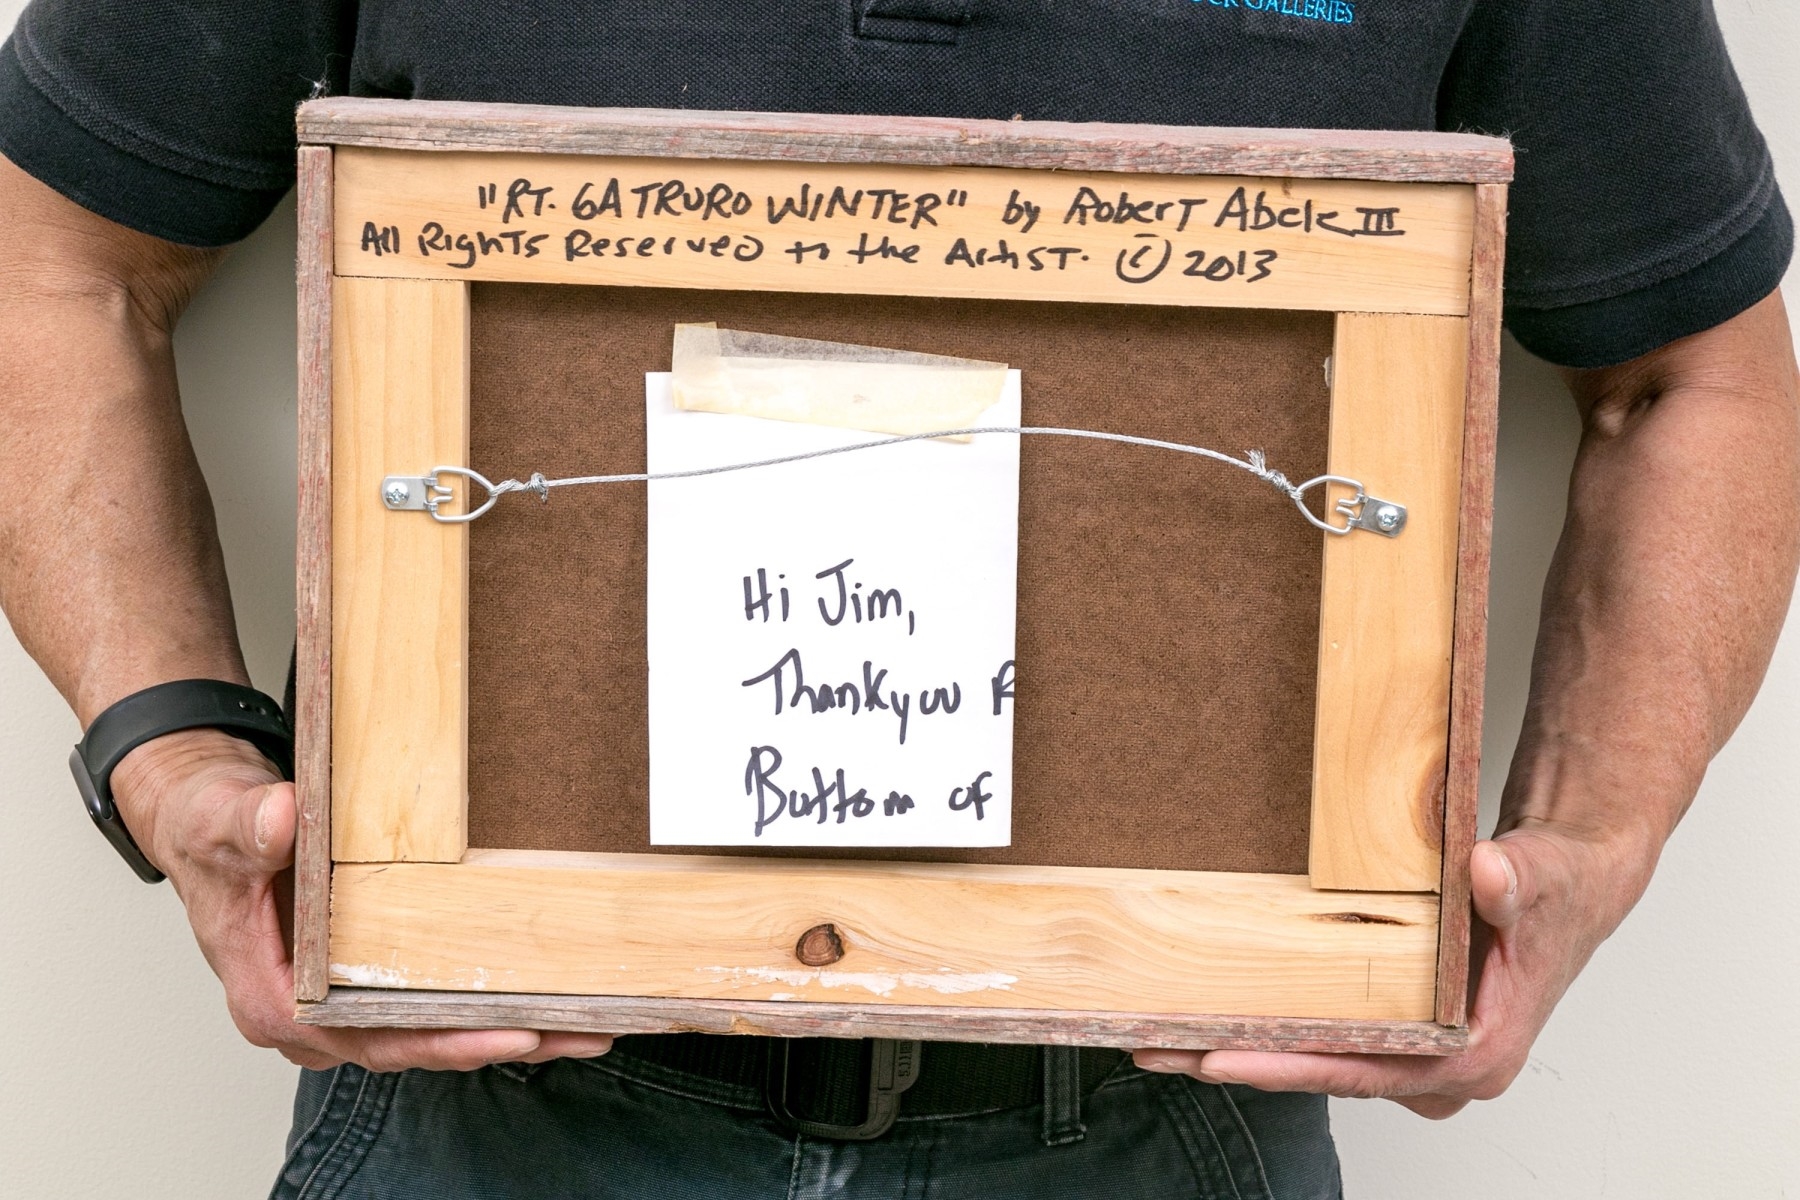 GALLERIES
"RT. 6A TRURO WINTER" by Robert Abele III
All Rights Reserved to the Artist. © 2013
Hi Jim,
Thankyou
Buttom of
5.11